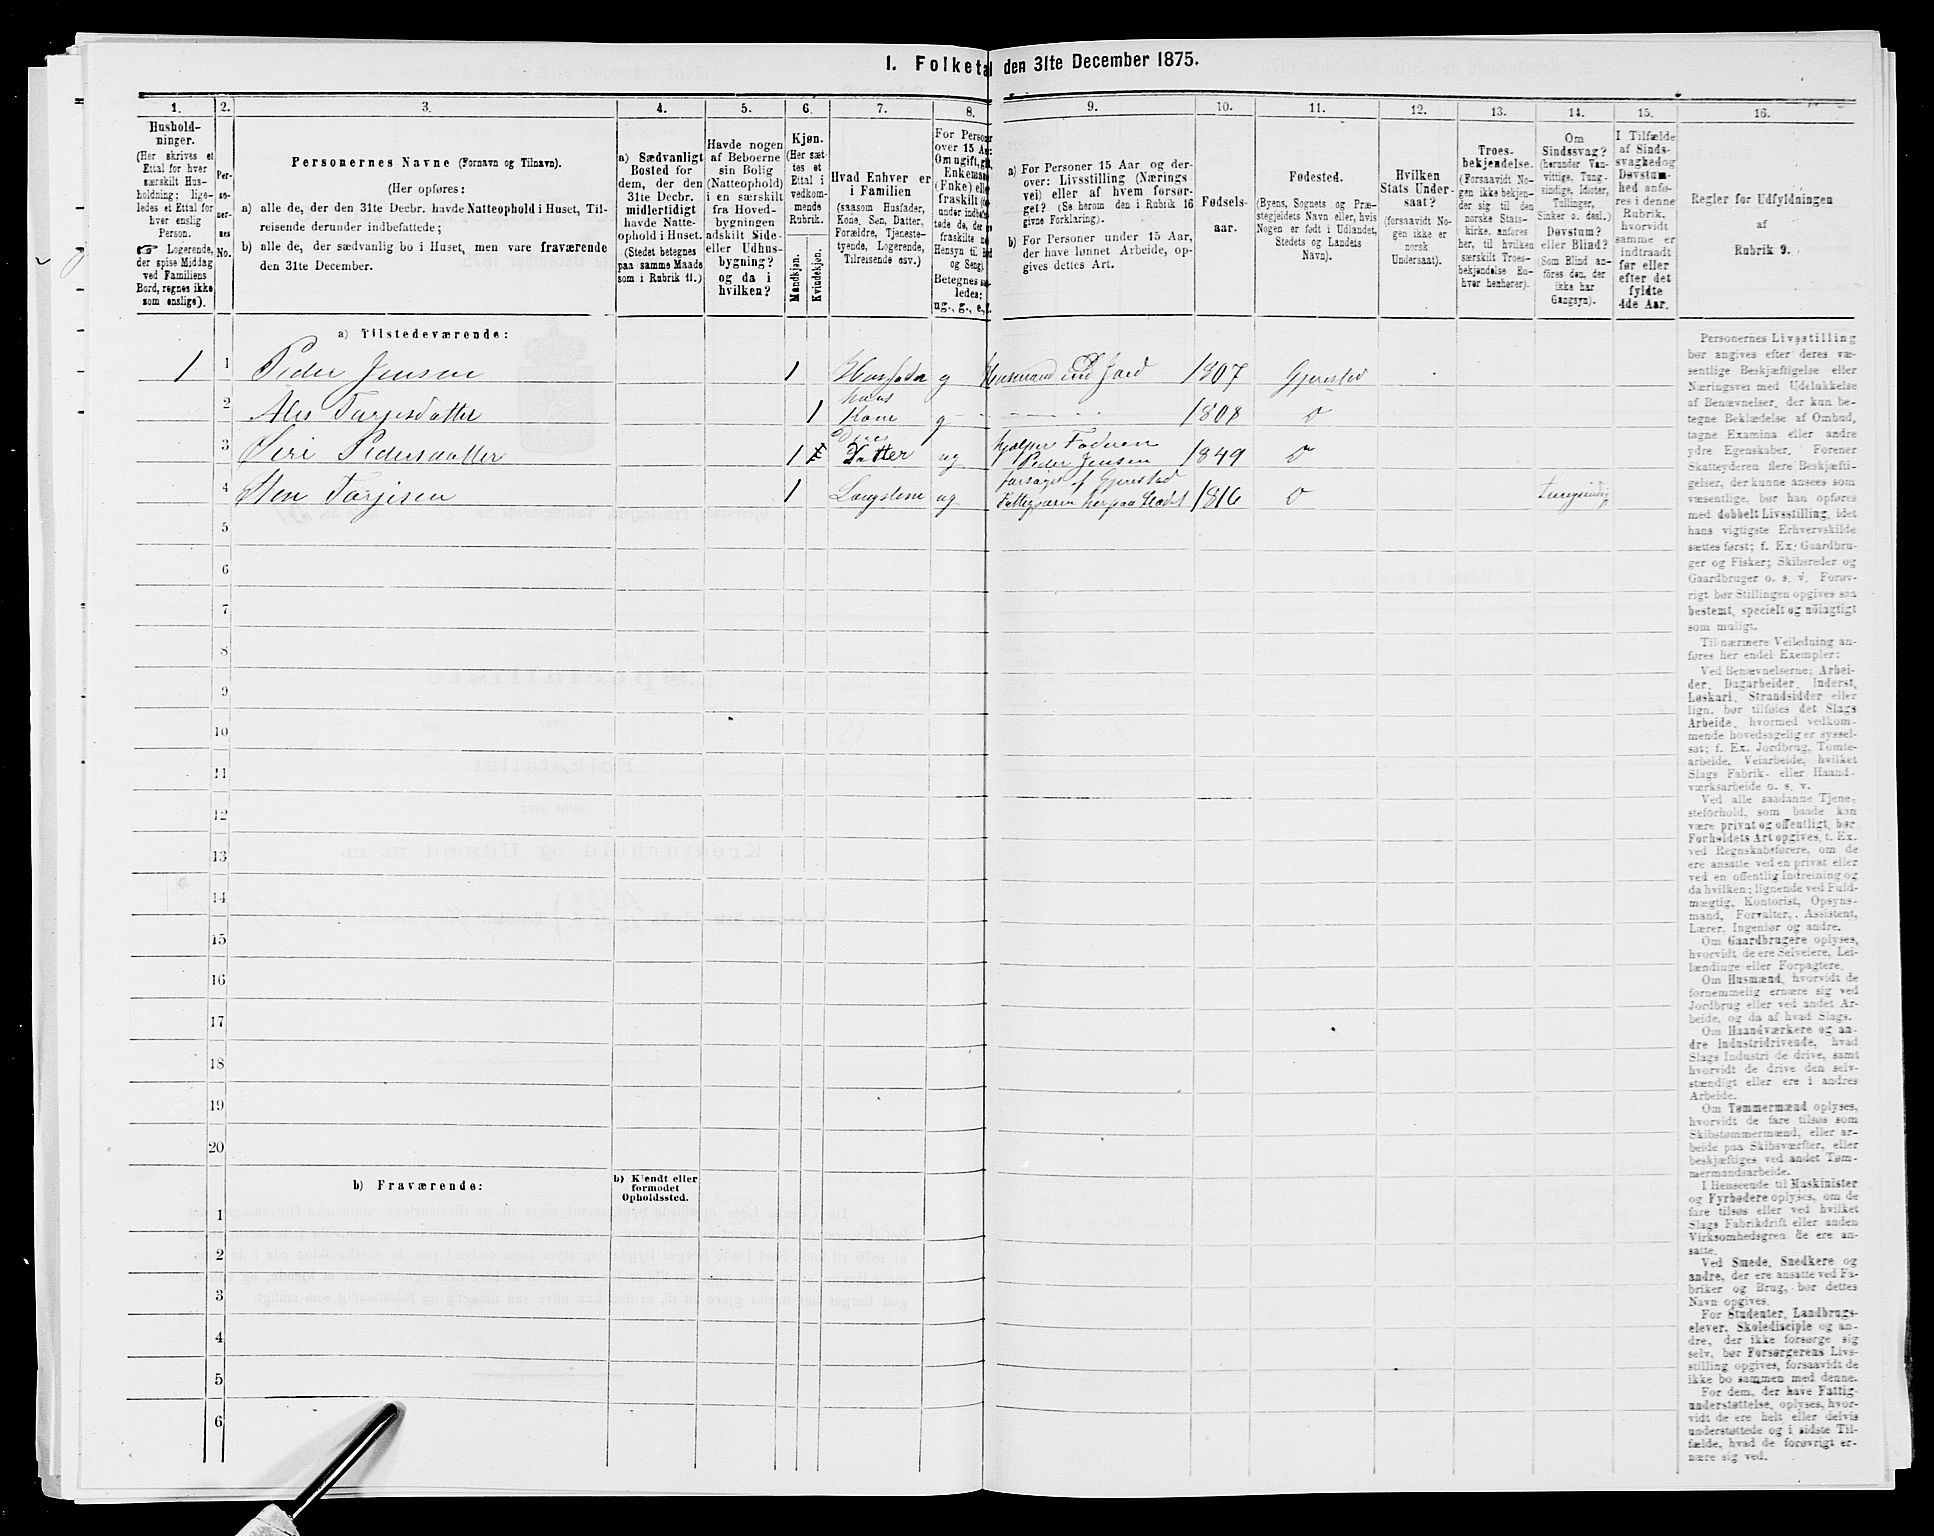 I. Folketal den 31te December 1875.
1. 2. 3. 4. 5. 6. 7. 8. 9. 10. 11. 12. 13. 14. 15. 16.
Hushold-
ninger.
(Her skrives et
Ettal for hver
særskilt Hus-
holdning; lige-
ledes et Ettal for
hver enslig
Person.
☞ Logerende,
der spise Middag
ved Familiens
Bord, regnes ikke
som enslige).
Per-
so-
ner-
nes
No.
Personernes Navne (Fornavn og Tilnavn).
(Her opføres:
a) alle de, der den 31te Decbr. havde Natteophold i Huset, Til-
reisende derunder indbefattede;
b) alle de, der sædvanlig bo i Huset, men vare fraværende
den 31te December.
a) Sædvanligt
Bosted for
dem, der den
31te Decbr.
midlertidigt
havde Natte-
ophold i Huset.
(Stedet betegnes
paa samme Maade
som i Rubrik 11.)
Havde nogen
af Beboerne
sin Bolig
(Natteophold)
i en særskilt
fra Hoved-
bygningen
adskilt Side-
eller Udhus-
bygning?
og da i
hvilken?
Kjøn.
(Her sæt-
tes et
Ettal i
vedkom-
mende
Rubrik.
Mandkjøn.
Kvindekjøn.
Hvad Enhver er
i Familien
(saasom Husfader,
Kone, Søn, Datter,
Forældre, Tjeneste-
tyende, Logerende,
Tilreisende osv.)
For Persone
over 15 Aa:
Om ugift, gift,
Enkemand
(Enke) eller
fraskilt
under indbe
tede de, der
fraskilte
Hensyn til Bord
og Seng).
Betegnes saa-
ledes:
ug., g., e.,
a) For Personer 15 Aar og der-
over: Livsstilling (Nærings
vei) eller af hvem forsør-
get? (Se herom den i Rubrik 16
givne Forklaring).
b) For Personer under 15 Aar,
der have lønnet Arbeide, op-
gives dettes Art.
Fødsels-
aar.
Fødested.
(Byens, Sognets og Præ-
stegjeldets Navn eller, hvis
Nogen er født i Udlandet,
Stedets og Landets
Navn).
Hvilken
Stats Under-
saat?
(forsaavidt No-
gen ikke er
norsk
Undersaat).
Troes-
bekjendelse.
(Forsaavidt No-
gen ikke bekjen-
der sig til den
norske Stats-
kirke, anføres
her, til hvilken
særskilt Troes-
bekjendelse En-
hver henhører).
Om
Sindssvag?
(herunder Van-
vittige, Tung-
sindige, Idioter,
Tullinger,
Sinker o. desl.)
Døvstum?
eller Blind?
(Som Blind an-
føres den, der
ikke har
Gangsyn).
I Tilfælde
af Sinds-
svaghed og
Døvstum-
hed anfø-
res i denne
Rubrik,
hvorvidt
samme er
indtraadt
før eller
efter det
fyldte
4de Aar.
Regler for Udfyldningen
af
Rubrik 9.
a) Tilstedeværende:
1 1 Peder Jensen 1 Husfader g Husmand med Jord 1807 Gjerestad
2 Ales Tarjesdatter 1 hans Kone g 1808 do
3 Siri Pedersdatter 1 Deres Datter ug hjælper Faderen Peder Jensen 1849 do
4 Sten Tarjesen 1 Logerende ug forsørget af Gjerestad Fattigvæsen 1816 do Tungsindig
5
6
7
8
9
10
11
12
13
14
15
16
17
18
19
20
b) Fraværende:
b) Kjendt eller
formodet
Opholdssted.
1
2
3
4
5
6
Personernes Livsstilling
bør angives efter deres væ-
sentlige Beskjæftigelse eller
Næringsvei med Udelukkelse
af Benævnelser, der kun be-
tegne Beklædelse af Ombud,
tagne Examina eller andre
ydre Egenskaber. Forener
Skatteyderen flere Beskjæfti-
gelser, der kunne ansees som
væsentlige, bør han opføres
med dobbelt Livsstilling, idet
hans vigtigste Erhvervskilde
sættes først; f. Ex. Gaardbru-
ger og Fisker; Skibsreder og
Gaardbruger o. s. v. Forøv-
rigt bør Stillingen opgives saa
bestemt, specielt og nöiagtigt
som muligt.
Til nærmere Veiledning an-
føres her endel Exempler:
Ved Benævnelserne: Arbei-
der, Dagarbeider, Inderst,
Løskarl, Strandsidder eller
lign. bør tilføies det Slags
Arbeide, hvormed vedkom-
mende hovedsagelig er syssel-
sat; f. Ex. Jordbrug, Tomte-
arbeide, Veiarbeide, hvilket
Slags Fabrik- eller Haand-
værksarbeide o. s. v.
Ved alle saadanne Tjene-
steforhold, som baade kan
være privat og offentligt, bør
Forholdets Art opgives, t. Ex.
ved Regnskabsførere, om de
ere ansatte ved en privat eller
ved en offentlig Indretning og
da hvilken; lignende ved Fuld-
mægtig, Kontorist, Opsyns-
mand, Forvalter, Assistent,
Lærer, Ingeniør og andre.
Om Gaardbrugere oplyses,
hvorvidt de ere Selveiere, Lei-
lændinge eller Forpagtere.
Om Husmænd, hvorvidt de
fornemmelig ernære sig ved
Jordbrug eller ved andet Ar-
beide, og da af hvad Slags.
Om Haandværkere og an-
dre Industridrivende, hvad
Slags Industri de drive, samt
hvorvidt de drive den selv-
stændigt eller ere i andres
Arbeide.
Om Tømmermænd oplyses,
hvorvidt de fare tilsøs som
Skibstømmermænd, eller ar-
beide paa Skibsværfter, eller
beskjæftiges ved andet Tøm-
mermandsarbeide.
I Henseende til Maskinister
og Fyrbødere oplyses, om de
fare tilsøs eller ved hvilket
Slags Fabrikdrift eller anden
Virksomhedsgren de ere an-
satte.
Ved Smede, Snedkere og
andre, der ere ansatte ved Fa-
briker og Brug, bør dettes
Navn opgives.
For Studenter, Landbrugs-
elever, Skoledisciple og an-
dre, der ikke forsørge sig
selv, bør Forsørgerens Livs-
stilling opgives, forsaavidt de
ikke bo sammen med denne.
For dem, der have Fattig-
understøttelse, oplyses, hvor-
vidt de ere helt eller delvis
understøttede og i sidste Til-
fælde, hvad de forøvrigt er-
nære sig ved.